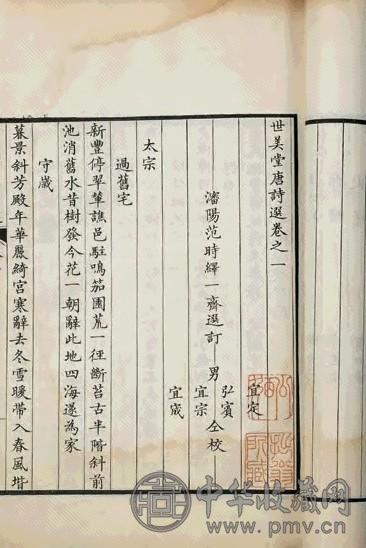 世美堂唐詩選卷之一
瀋陽范時繹一齋選訂
男
宜定
弘賓
宜宗
宜宬
仝校
太宗
過舊宅
新豐停翠輦譙邑駐鳴笳園荒一徑斷苔古半階斜前
池消舊水昔樹發今花一朝辭此地四海遂為家
守歲
暮景斜芳殿年華麗綺宮寒辭去冬雪暖帶入春風堦
中华收藏网
www.pmv.cn